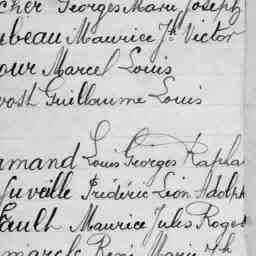 cher Georges Marie Joseph
ubeau Maurice Jh Victor
our Marcel Louis
vost Guillaume Louis
amand Louis Georges Rapha
uveille Frédéric Léon Adolph
Fault Maurice Jules Roger
marck René Marie